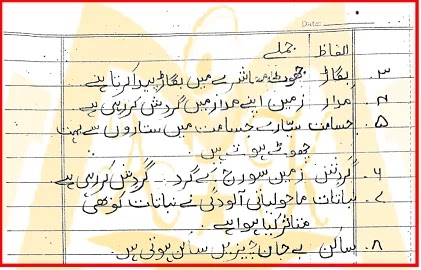 Date:
الفاظ جملے
۳۔ بگاڑ جھوٹ معاشرے میں بگاڑ پیدا کرتا ہے
۴۔ مدار زمین اپنے مدار میں گردش کر رہی ہے
۵ جسامت سیارے جسامت میں ستاروں سے بہت
چھوٹے ہوتے ہیں
۶۔ گردش زمین سورج کے گرد گردش کر رہی ہے
۷۔ نباتات ماحولیاتی آلودگی نے نباتات کو بھی
متاثر کیا ہوا ہے۔
۸۔ ساکن بے جان چیزیں ساکن ہوتی ہیں۔